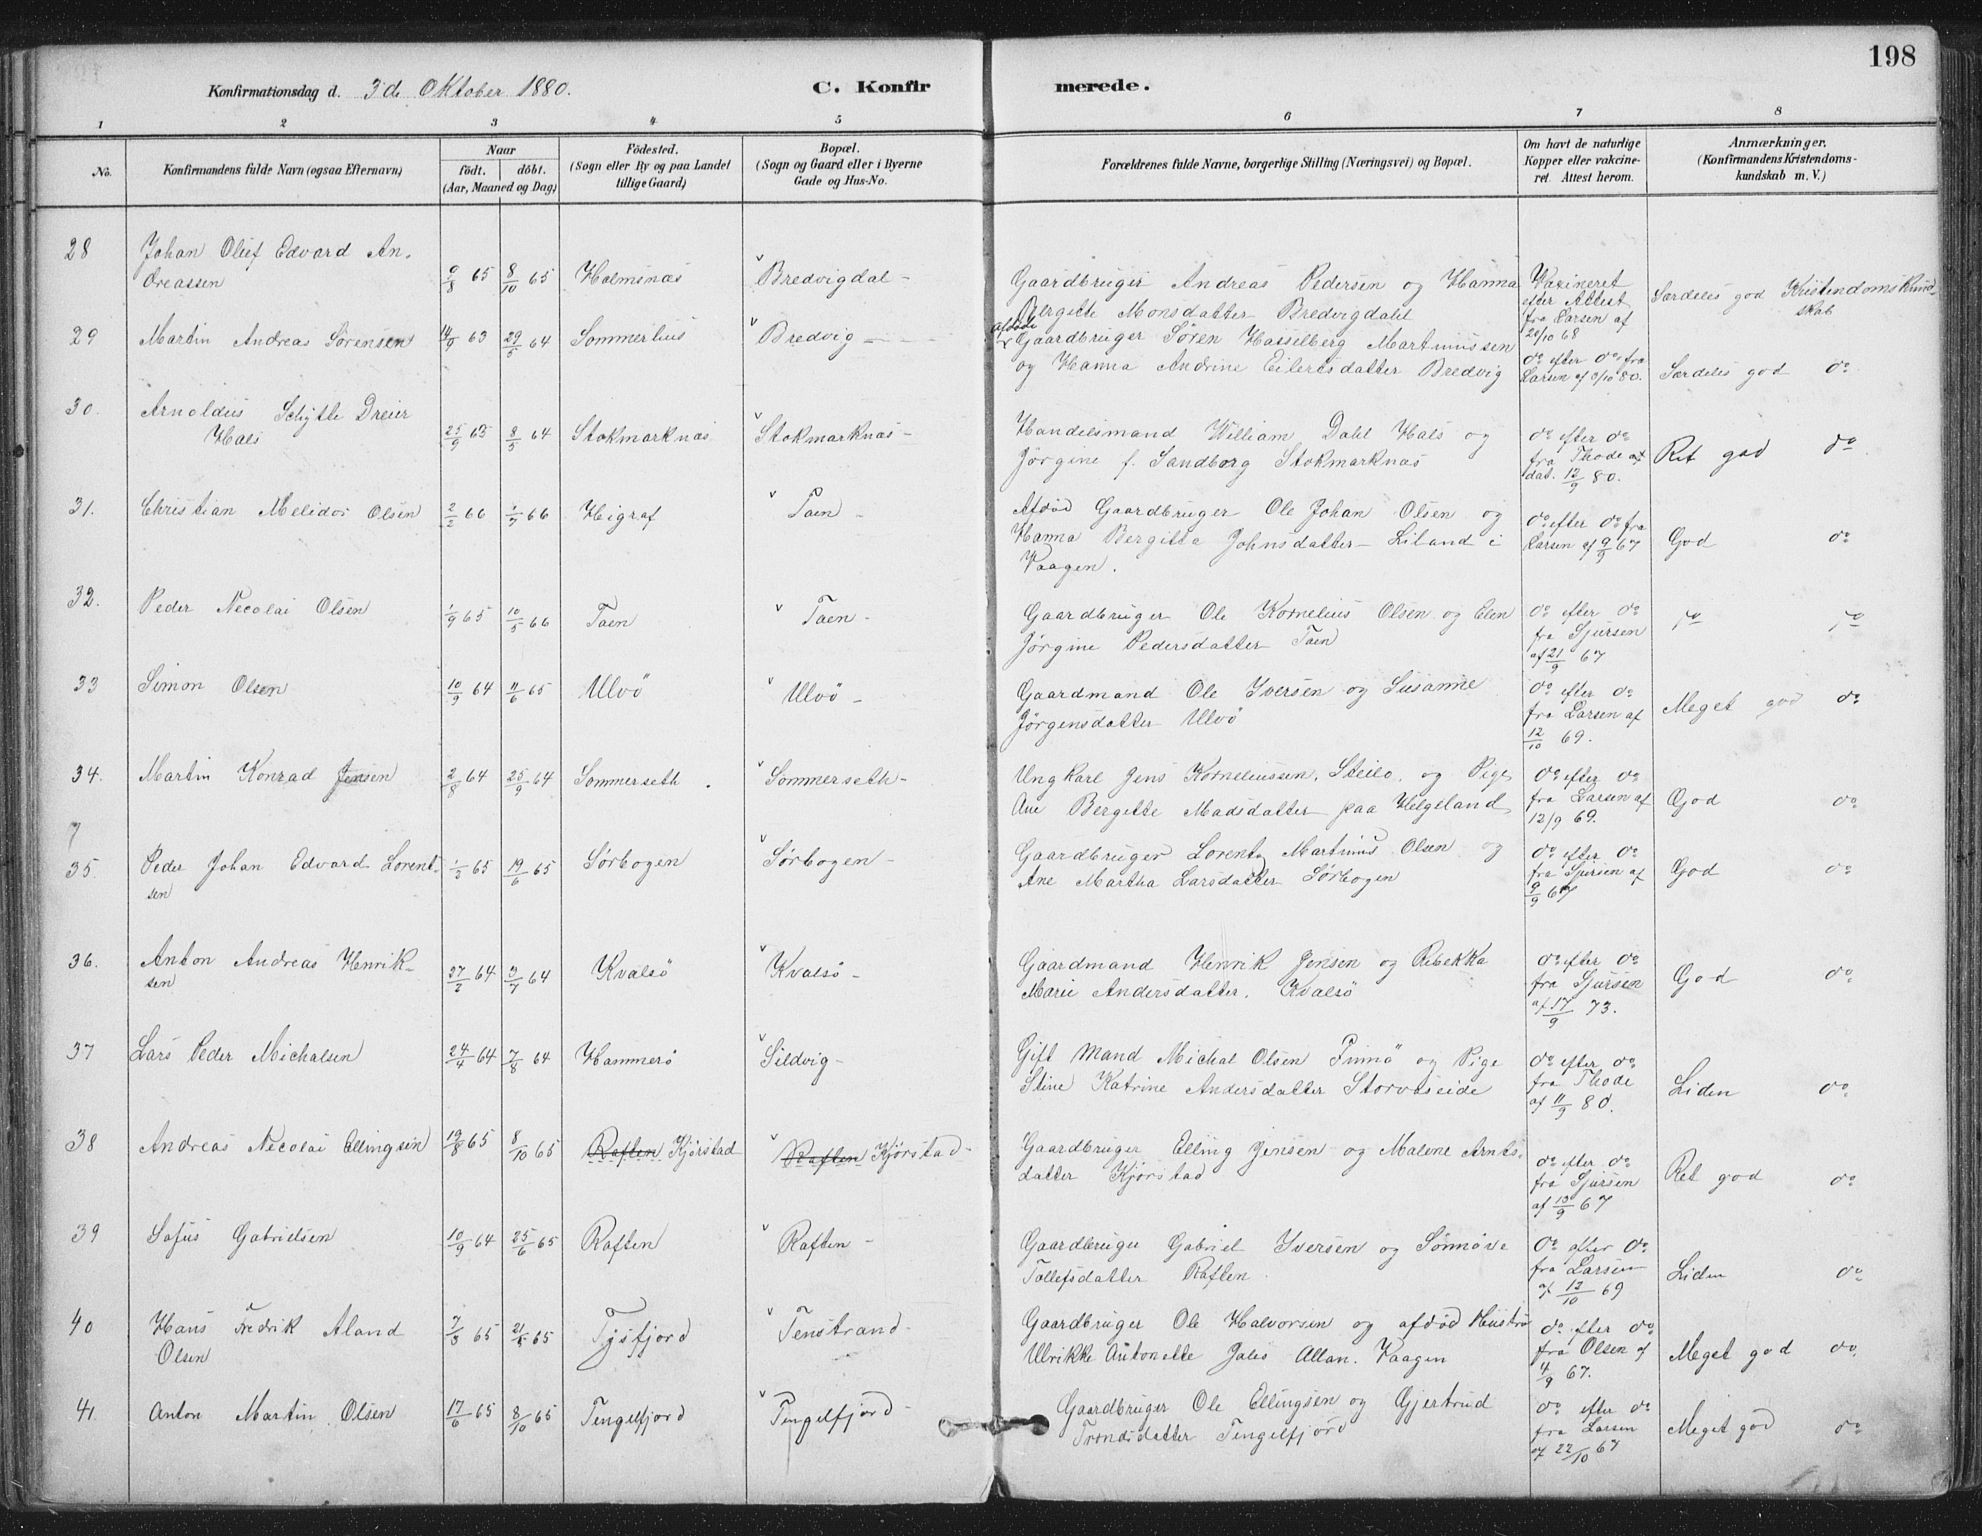 198
Konfirmationsdag d. 3de Oktober 1880. C. Konfirmerede.
1 2 3 4 5 6 7 8
No. Konfirmandens fulde Navn (ogsaa Efternavn) Naar födt. döbt. (Aar, Maaned og Dag) Födested. (Sogn eller By og paa Landet tillige Gaard) Bopæl. (Sogn og Gaard eller i Byerne Gade og Hus-No. Forældrenes fulde Navne, borgerlige Stilling (Næringsvei) og Bopæl. Om havt de naturlige Kopper eller vakcineret. Attest herom. Anmærkninger. (Konfirmandens Kristendomskundskab m. V.)
28 Johan Oluf Edvard An-
dreassen 9/8 65 8/10 65 Holmsnæs v Bredvigdal - Gaardbruger Andreas Pedersen og Hanna Vaxineret
Bergitte Monsdatter Bredvigdalel efter Attest Særdeles god Kristendomskund-
skab
fra Larsen af
20/10 68
29 Martin Andreas Sörensen 14/9 63 29/5 64 Sommerhus v Bredvig - afdöde Gaardbruger Sören Hasselberg Martinussen
og Hanna Andrine Eilertsdatter Bredvig do efter do fra
Larsen af 3/10 80. Særdeles god do
30. Arnoldus Schytte Dreier
Hals 25/9 63 8/5 64 Stokmarknæs v Stokmarknæs - Handelsmand William Dahl Hals og do efter do
Jörgine f. Sandborg Stokmarknæs fra Thode af
dat. 12/9 80. Ret god do
31. Christian Melidor Olsen 2/2 66 1/7 66 Higraf v Taen - Afdöd Gaardbruger Ole Johan Olsen og
Hanna Bergitta Johnsdatter - Liland i
Vaagen. do efter do fra
Larsen af 9/9 67 God do
32. Peder Necolai Olsen 1/9 65 10/5 66 Taen v Taen - Gaardbruger Ole Kornelius Olsen og Elen
Jörgine Pedersdatter Taen do efter do
fra Sjursen
af 21/9 67 do do
33 Simon Olsen 10/9 64 11/6 65 Ulvö v Ulvö - Gaardmand Ole Iversen og Susanne
Jörgensdatter Ulvö do efter do
fra Larsen af
12/10 69. Meget god do
34. Martin Konrad Jensen 2/8 64 25/9 64 Sommerseth. v Sommerseth - Ungkarl Jens Korneliussen, Steilo, og Pige
Ane Bergitte Madsdatter paa Helgeland do efter do
fra Larsen af
12/9 69. God do
7
35. Peder Johan Edvard Lorent-
sen 1/5 65 19/6 65 Sörbogen v Sörbogen - Gaardbruger Lorentz Martinus Olsen og
Ane Martha Larsdatter Sörbogen do efter do
fra Sjursen af
9/9 67 God do
36. Anton Andreas Henrik-
sen 27/2 64 3/7 64 Kvalsö v Kvalsö - Gaardmand Henrik Jensen og Rebekka
Marie Andersdatter. Kvalsö do efter do
fra Sjursen
af 17/9 73. God do
37 Lars Peder Michalsen 24/4 64 7/8 64 Hammerö v Sildvig - Gift Mand Michal Olsen Finnö og Pige
Stine Katrine Andersdatter Storvaseide do efter do
fra Thode
af 11/9 80. Liden do
38 Andreas Necolai Ellingsen 19/8 65 8/10 65 Raften Kjörstad v Raften Kjörstad - Gaardbruger Elling Jensen og Malene Arnts-
datter Kjörstad do efter do
fra Sjursen
af 13/9 67 Ret god do
39 Sofus Gabrielsen 10/9 64 25/6 65 Raften v Raften - Gaardbruger Gabriel Iversen og Sönnöve
Tollefsdatter Raften do efter do
fra Larsen
af 13/10 69 Liden do
40 Hans Fredrik Aland
Olsen 7/3 65 21/5 65 Tysfjord v Tenstrand - Gaardbruger Ole Halvorsen og afdöd Hustru
Ulrikke Antonette Jales Allan. Vaagen do efter do
fra Olsen af
4/9 67. Meget god do
41 Anton Martin Olsen 17/6 65 8/10 65 Tengelfjord v Tengelfjord - Gaardbruger Ole Ellingsen og Gjertrud
Trondsdatter Tengelfjord do efter do
fra Larsen
af 22/10 67 Meget god do